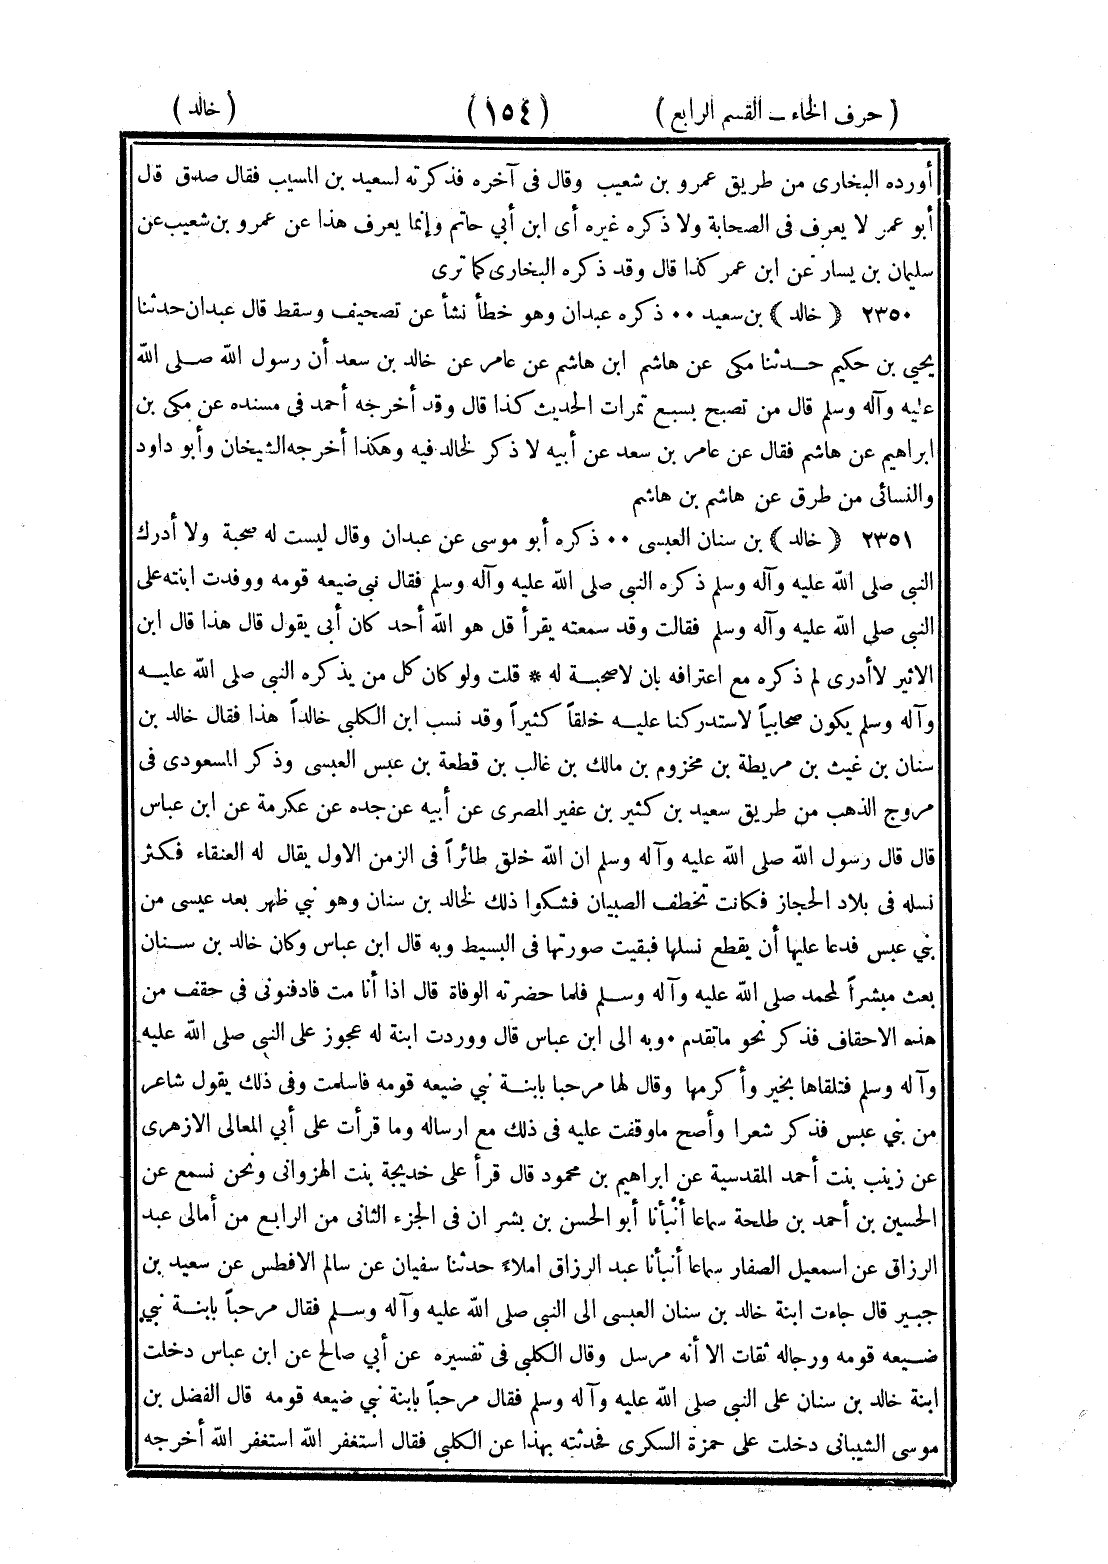 ( حرف الخاء – القسم الرابع )
( ١٥٤ )
( خالد )
أورده البخارى من طريق عمرو بن شعيب وقال فى آخره فذكرته لسعيد بن المسيب فقال صدق قال
أبو عمر لا يعرف فى الصحابة ولا ذكره غيره أى ابن أبي حاتم وإنما يعرف هذا عن عمرو بن شعيب عن
سليمان بن يسار عن ابن عمر كذا قال وقد ذكره البخارى كما ترى
٢٣٥٠ ( خالد ) بن سعيد ٠٠ ذكره عبدان وهو خطأ نشأ عن تصحيف وسقط قال عبدان حدثنا
يحيي بن حكيم حدثنا مكى عن هاشم ابن هاشم عن عامر عن خالد بن سعد أن رسول الله صلى الله
عليه وآله وسلم قال من تصبح بسبع تمرات الحديث كذا قال وقد أخرجه أحمد فى مسنده عن مكى بن
ابراهيم عن هاشم فقال عن عامر بن سعد عن أبيه لا ذكر لخالد فيه وهكذا أخرجه الشيخان وأبو داود
والنسائى من طرق عن هاشم بن هاشم
٢٣٥١ ( خالد ) بن سنان العبسى ٠٠ ذكره أبو موسى عن عبدان وقال ليست له صحبة ولا أدرك
النبى صلى الله عليه وآله وسلم ذكره النبى صلى الله عليه وآله وسلم فقال نبى ضيعه قومه ووفدت ابنته على
النبى صلى الله عليه وآله وسلم فقالت وقد سمعته يقرأ قل هو الله أحد كان أبى يقول قال هذا قال ابن
الاثير لا أدرى لم ذكره مع اعترافه بان لا صحبة له * قلت ولو كان كل من يذكره النبى صلى الله عليه
وآله وسلم يكون صحابياً لاستدركنا عليه خلقاً كثيراً وقد نسب ابن الكلبى خالداً هذا فقال خالد بن
سنان بن غيث بن مريطة بن مخزوم بن مالك بن غالب بن قطعة بن عبس العبسى وذكر المسعودى فى
مروج الذهب من طريق سعيد بن كثير بن عفير المصرى عن أبيه عن جده عن عكرمة عن ابن عباس
قال قال رسول الله صلى الله عليه وآله وسلم ان الله خلق طائراً فى الزمن الاول يقال له العنقاء فكثر
نسله فى بلاد الحجاز فكانت تخطف الصبيان فشكوا ذلك لخالد بن سنان وهو نبي ظهر بعد عيسى من
بني عبس فدعا عليها أن يقطع نسلها فبقيت صورتها فى البسيط وبه قال ابن عباس وكان خالد بن سنان
بعث مبشراً لمحمد صلى الله عليه وآله وسلم فلما حضرته الوفاة قال اذا أنا مت فادفنونى فى حقف من
هذه الاحقاف فذكر نحو ما تقدم ٠ وبه الى ابن عباس قال ووردت ابنة له عجوز على النبي صلى الله عليه
وآله وسلم فتلقاها بخير وأكرمها وقال لها مرحبا بابنة نبي ضيعه قومه فاسلمت وفى ذلك يقول شاعر
من بني عبس فذكر شعرا وأصح ما وقفت عليه فى ذلك مع ارساله وما قرأت على أبي المعالى الازهرى
عن زينب بنت أحمد المقدسية عن ابراهيم بن محمود قال قرأ على خديجة بنت الهزوانى ونحن نسمع عن
الحسين بن أحمد بن طلحة سماعا أنبأنا أبو الحسن بن بشران فى الجزء الثانى من الرابع من أمالى عبد
الرزاق عن اسمعيل الصفار سماعا أنبأنا عبد الرزاق املاء حدثنا سفيان عن سالم الافطس عن سعيد بن
جبير قال جاءت ابنة خالد بن سنان العبسى الى النبي صلى الله عليه وآله وسلم فقال مرحباً بابنة نبي
ضيعه قومه ورجاله ثقات الا أنه مرسل وقال الكلبى فى تفسيره عن أبي صالح عن ابن عباس دخلت
ابنة خالد بن سنان على النبى صلى الله عليه وآله وسلم فقال مرحباً بابنة نبي ضيعه قومه قال الفضل بن
موسى الشيبانى دخلت على حمزة السكرى فحدثته بهذا عن الكلبي فقال استغفر الله استغفر الله أخرجه